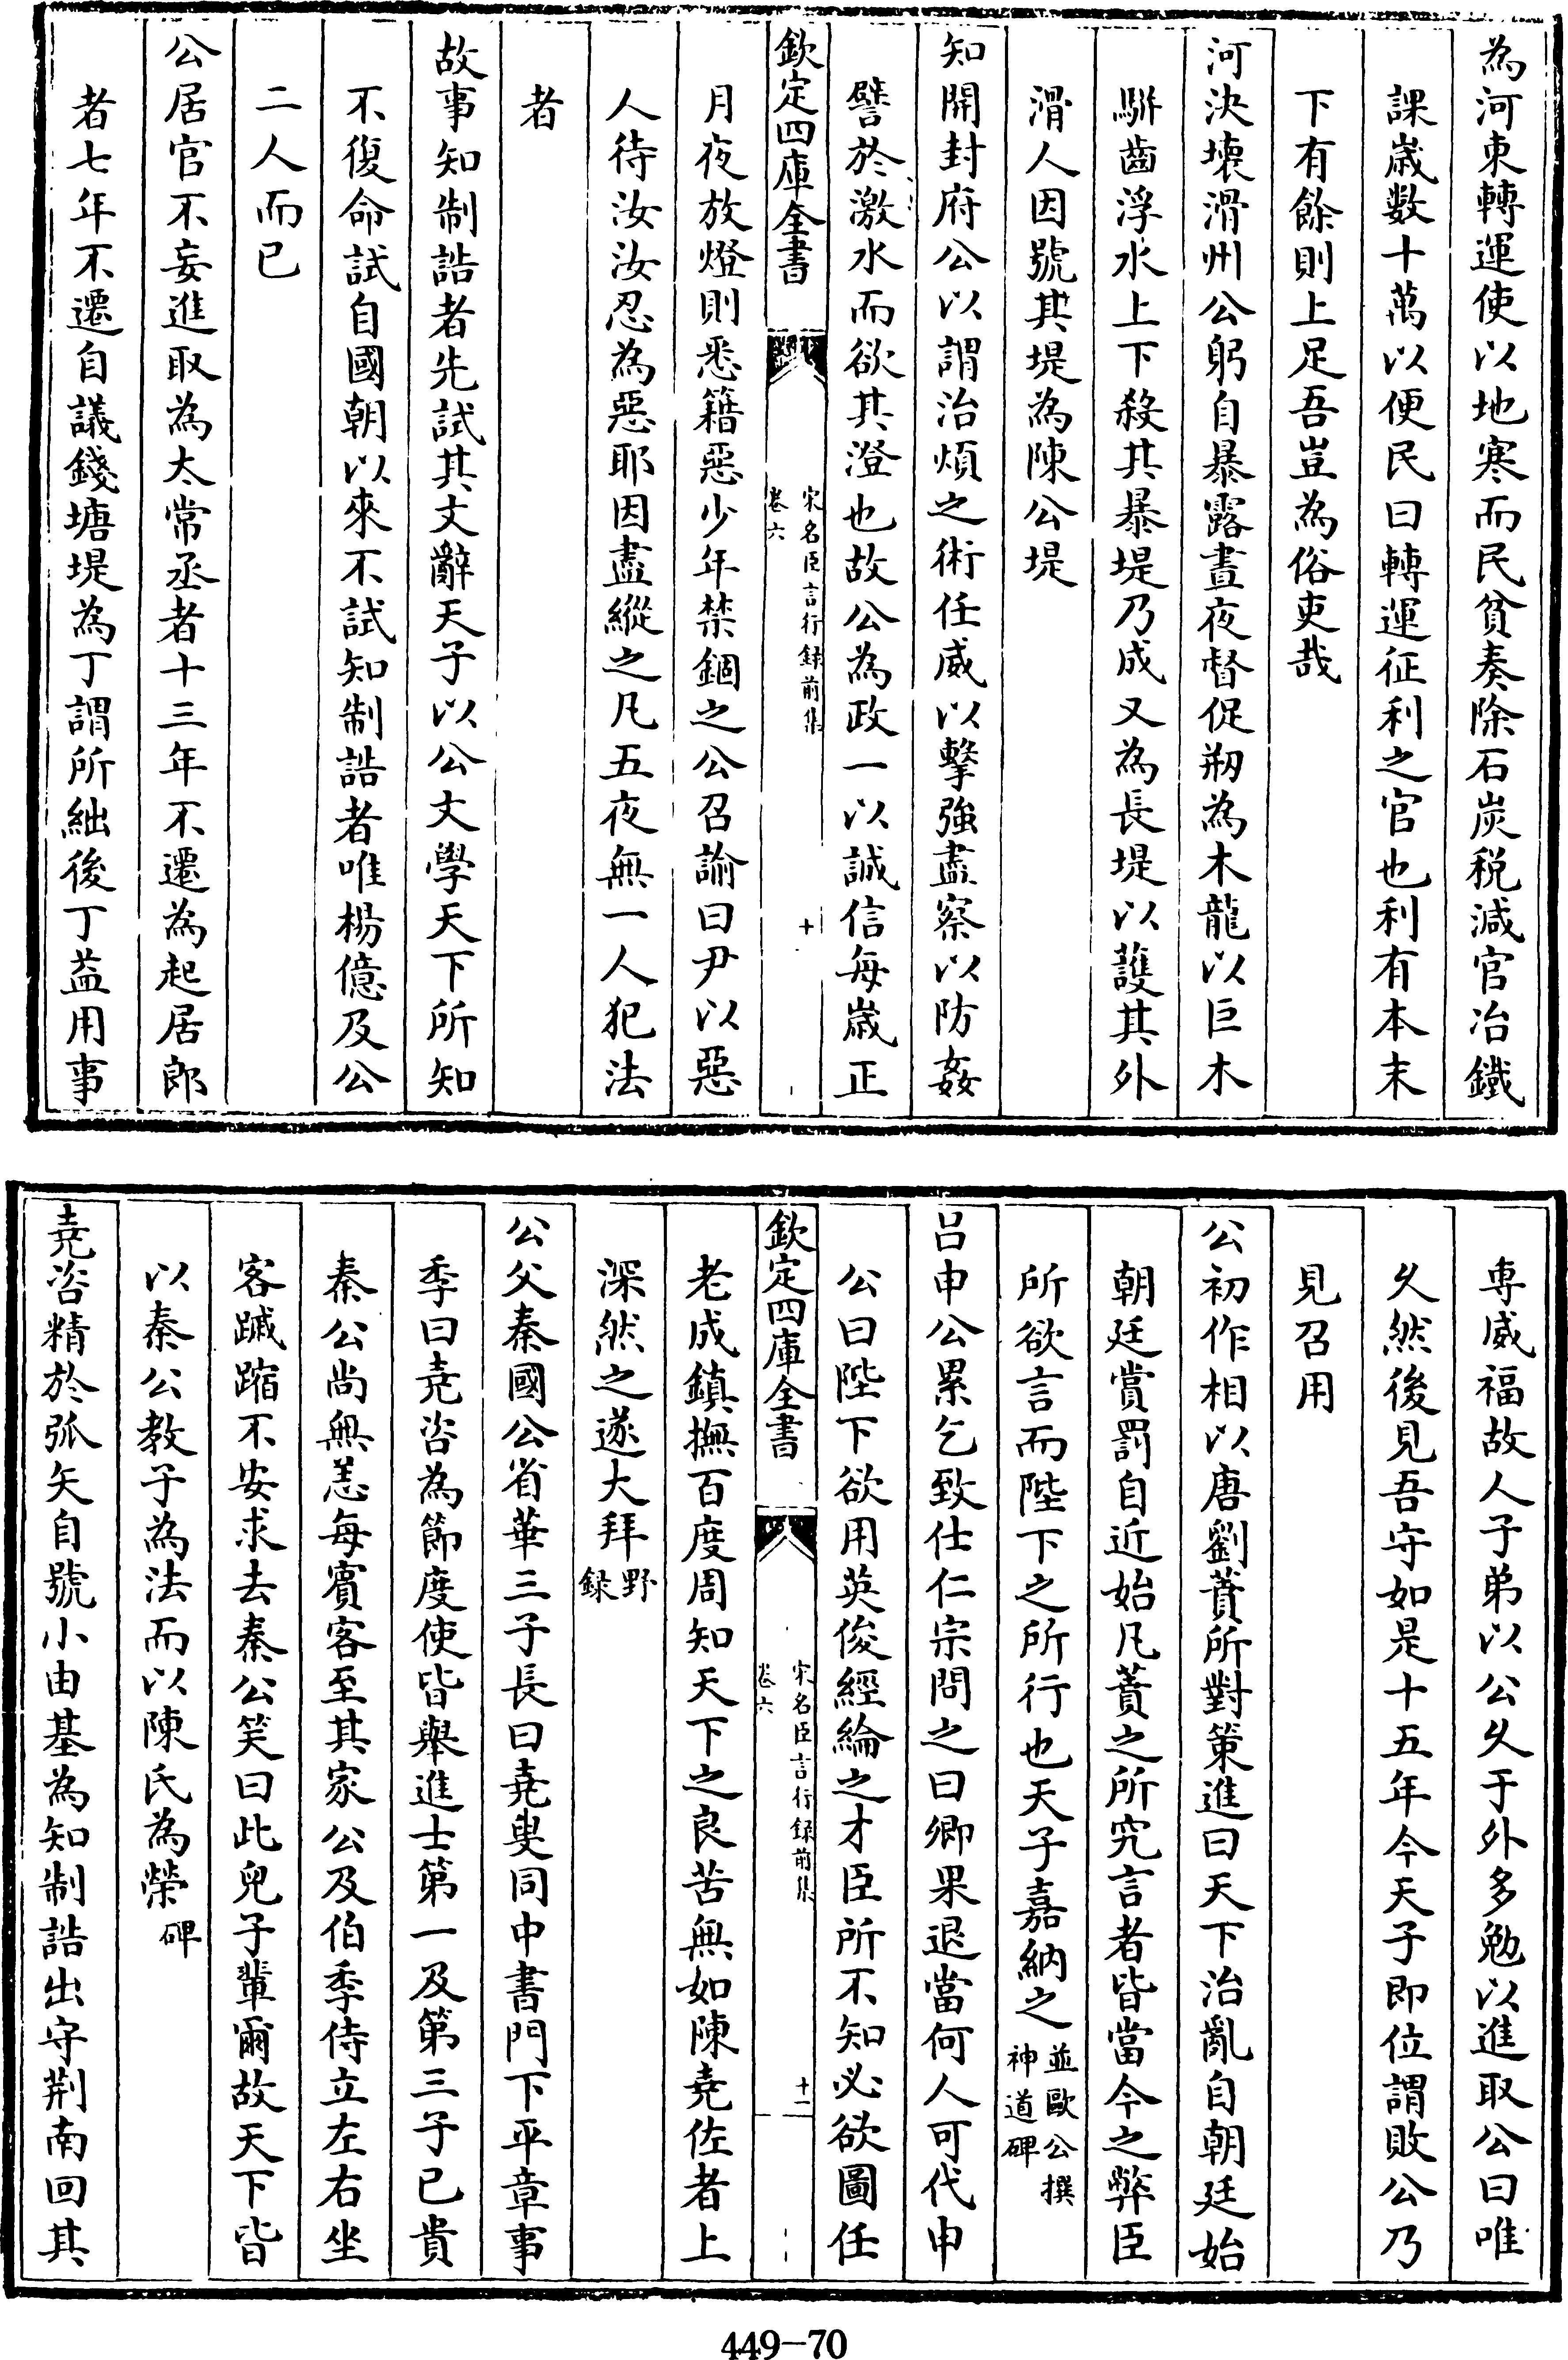 為河東轉運使以地寒而民貧奏除石炭税減官冶鐵
課嵗數十萬以便民曰轉運征利之官也利有本末
下有餘則上足吾豈為俗吏哉
河決壊滑州公躬自暴露晝夜督促剙為木龍以巨木
駢齒浮水上下殺其暴堤乃成又為長堤以護其外
滑人因號其堤為陳公堤
知開封府公以謂治煩之術任威以擊強盡察以防姦
譬於激水而欲其澄也故公為政一以誠信每嵗正
欽定四庫全書
宋名臣言行録前集
卷六
十
月夜放燈則悉籍惡少年禁錮之公召諭曰尹以惡
人待汝汝忍為惡耶因盡縱之凡五夜無一人犯法
者
故事知制誥者先試其文辭天子以公文學天下所知
不復命試自國朝以來不試知制誥者唯楊億及公
二人而已
公居官不妄進取為太常丞者十三年不遷為起居郎
者七年不遷自議錢塘堤為丁謂所絀後丁益用事
專威福故人子弟以公乆于外多勉以進取公曰唯
乆然後見吾守如是十五年今天子即位謂敗公乃
見召用
公初作相以唐劉蕡所對策進曰天下治亂自朝廷始
朝廷賞罰自近始凡蕡之所究言者皆當今之弊臣
所欲言而陛下之所行也天子嘉納之
並歐公撰
神道碑
呂申公累乞致仕仁宗問之曰卿果退當何人可代申
公曰陛下欲用英俊經綸之才臣所不知必欲圖任
欽定四庫全書
宋名臣言行録前集
卷六
十一
老成鎮撫百度周知天下之良苦無如陳堯佐者上
深然之遂大拜
野
録
公父秦國公省華三子長曰堯叟同中書門下平章事
季曰堯咨為節度使皆舉進士第一及第三子已貴
秦公尚無恙每賔客至其家公及伯季侍立左右坐
客踧踖不安求去秦公笑曰此兒子輩爾故天下皆
以秦公教子為法而以陳氏為榮
碑
堯咨精於弧矢自號小由基為知制誥出守荆南回其
449-70